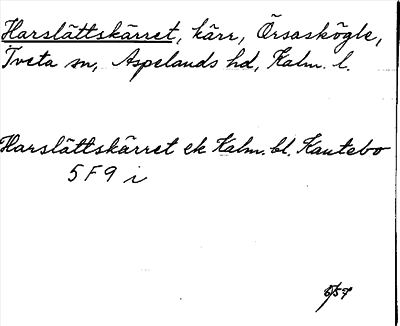 Harslättskärret, kärr, Örsaskögle,
Tveta sn, Aspelands hd, Kalm. l.
Harslättskärret ek Kalm. bl. Kantebo
5 F 9 i